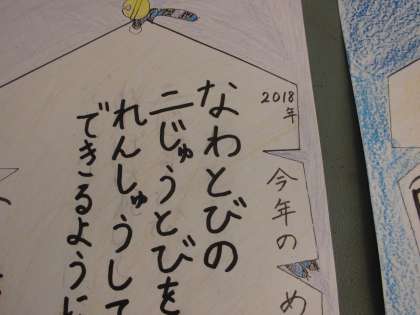 2018年
今年の め
なわとびの
二じゅうとびを
れんしゅうして
できるように